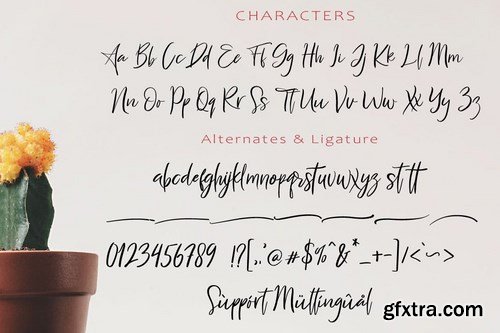 CHARACTERS
Aa Bb Cc Dd Ee Ff Gg Hh Ii Jj Kk Ll Mm
Nn Oo Pp Qq Rr Ss Tt Uu Vv Ww Xx Yy Zz
Alternates & Ligature
abcdefghijklmnopqrstuvwxyz st tt
0123456789 !?[,.'@#$%^&*_+-]/<`~>
Sùppórt Mültîngûàl
gfxtra.com